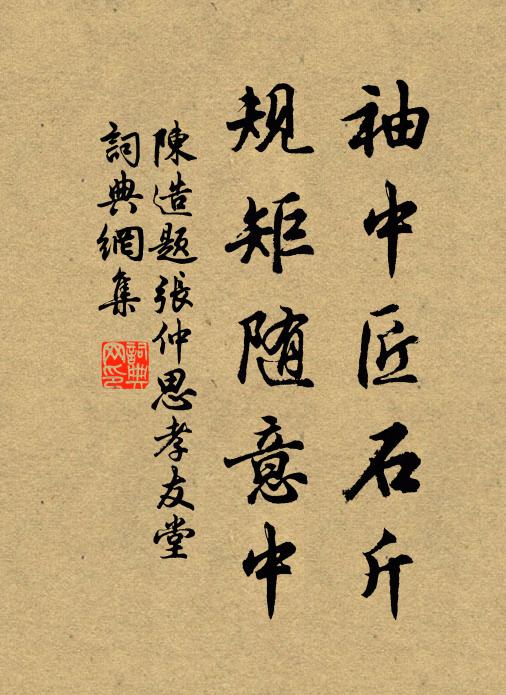 袖中匠石斤
規矩随意中
陳造題張仲思孝友堂
詞典網集
詞典
网印